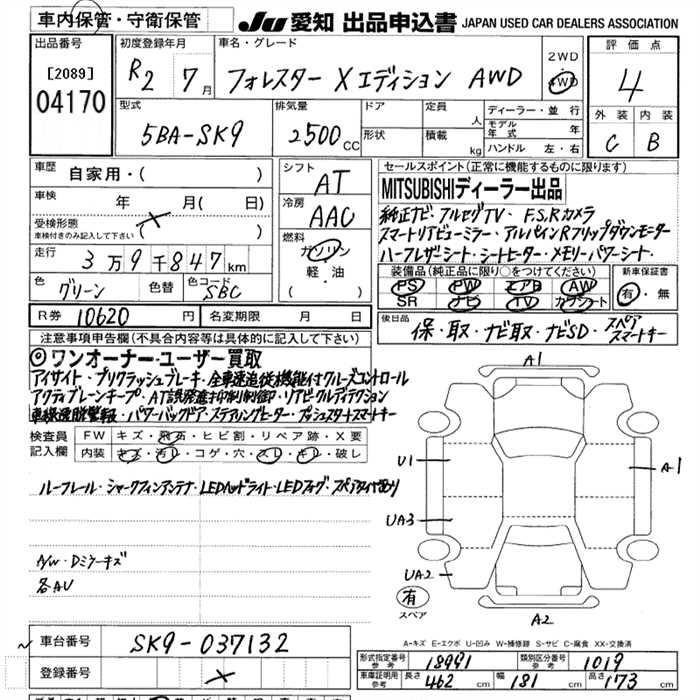 車内保管・守衛保管
JU 愛知 出品申込書 JAPAN USED CAR DEALERS ASSOCIATION
出品番号 [2089] 04170
初度登録年月 R2 7月
車名・グレード フォレスター X エディション AWD
2WD 4WD
評価点 4
型式 5BA-SK9
排気量 2500 cc
ドア 形状
定員 人 積載 kg
ディーラー・並行
モデル年式 年
ハンドル 左・右
外装 C 内装 B
車歴 自家用・( )
車検 年 月( 日)
受検形態 車検付きのみ記入して下さい ( )
走行 3万9千847km
色 グリーン 色替 色コード SBC
R券 10620円 名変期限 月 日
シフト AT
冷房 AAC
燃料 ガソリン 軽油 ( )
セールスポイント(正常に機能するものに限ります)
MITSUBISHIディーラー出品
純正ナビ・フルセグTV・F.S.Rカメラ
スマートリアビューミラー・アルパインRフリップダウンモニター
ハーフレザーシート・シートヒーター・メモリーパワーシート
装備品(純正品に限り○をつけてください) 新車保証書
PS PW エアB AW 有・無
SR ナビ TV カワシート
後日品 保・取・ナビ取・ナビSD・スペアスマートキー
注意事項申告欄(不具合内容等は具体的に記入して下さい)
◎ワンオーナー・ユーザー買取
アイサイト・プリクラッシュブレーキ・全車速追従機能付クルーズコントロール
アクティブレーンキープ・AT誤発進抑制制御・リアビークルディテクション
車線逸脱警報・パワーバックドア・ステアリングヒーター・プッシュスタートスマートキー
検査員記入欄 FW キズ・飛石・ヒビ割・リペア跡・X要
内装 キズ・汚レ・コゲ・穴・スレ・キレ・破レ
ルーフレール・シャークフィンアンテナ・LEDヘッドライト・LEDフォグ・スペアタイヤ有り
A/W・Dミラーキズ
各AU
A1
U1
A1
UA3
UA2
A2
有 スペア
A-キズ E-エクボ U-凹み W-補修跡 S-サビ C-腐食 XX-交換済
車台番号 SK9-037132
登録番号
形式指定番号 参考 18991 類別区分番号 参考 1019
車庫証明用 参考 長さ 462 cm 幅 181 cm 高さ 173 cm